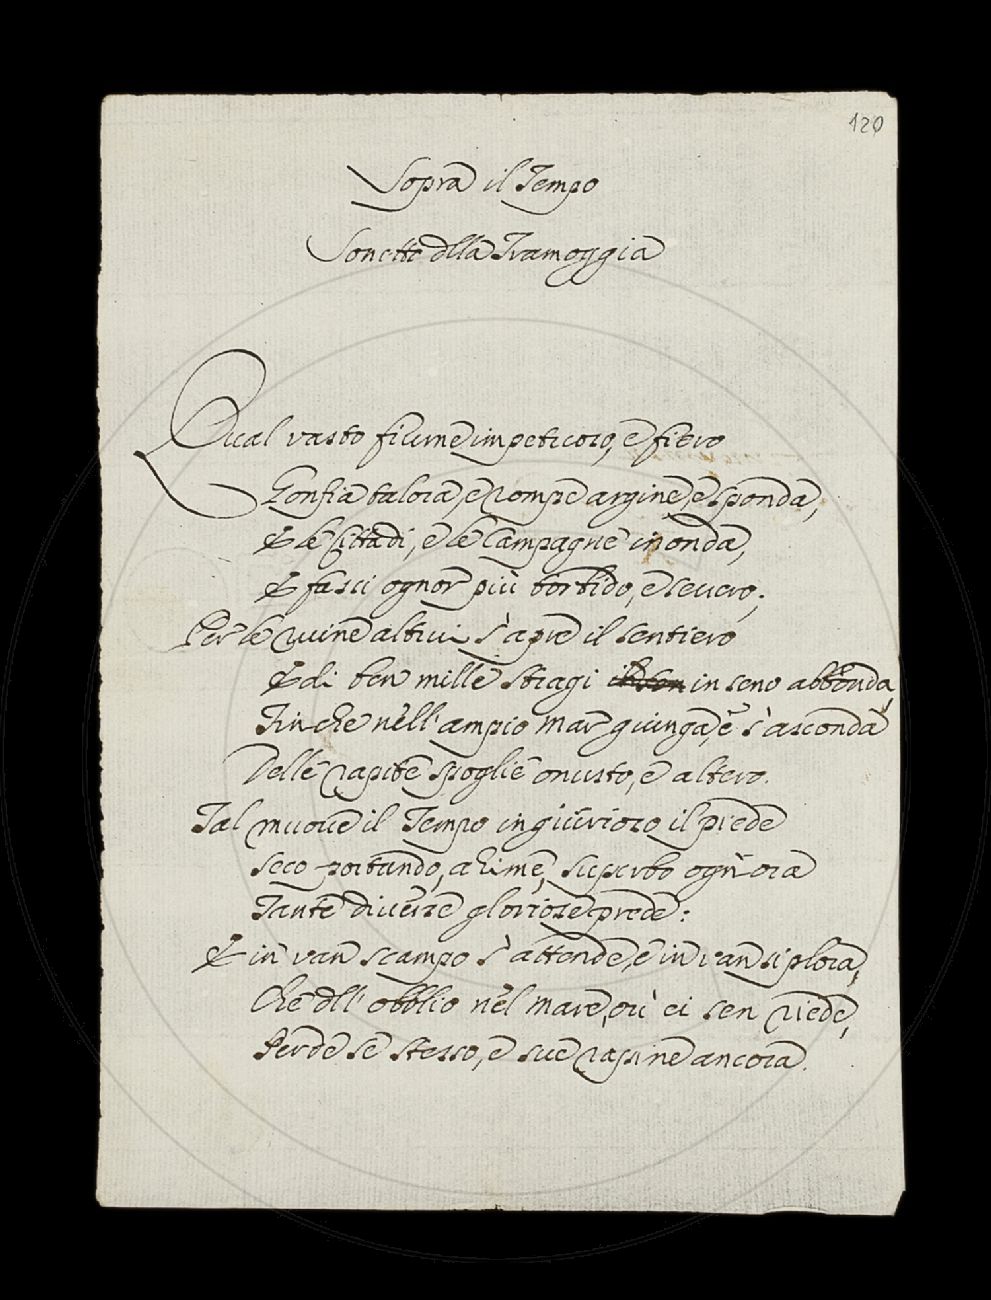 120
Sopra il Tempo
Sonetto dlla Tramoggia
Qual vasto fiume impetuoso, e fiero
Gonfia talora, e rompe argine, e sponda,
E le Cittadi, e le Campagne inonda,
E fassi ognor più torbido, e severo;
Per le ruine altrui s'apre il sentiero
E di ben mille stragi in seno abbonda,
Finche nell'ampio mar giunga, e s'asconda
Delle rapite spoglie onusto, e altero.
Tal muove il Tempo ingiurioso il piede
seco portando, ahime, superbo ogn'ora
Tante diverse gloriose prede:
E in van scampo s'attende, e in van si plora,
Che dll'obblio nel mare, ov'ei sen riede,
Perde se stesso, e sue rapine ancora.